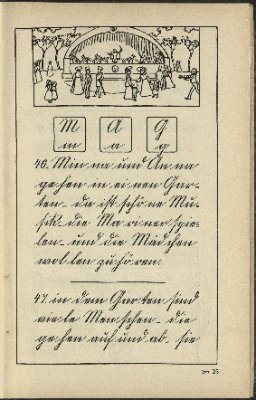 M A G
m a g
40. Min na und An na
ge hen in ei nen Gar-
ten - da ist schö ne Mu-
sik - die Ma ri ner spie-
len - und die Mäd chen
wol len zu hö ren.
41. in dem Gar ten sind
vie le Men schen - die
ge hen auf und ab - sie
25